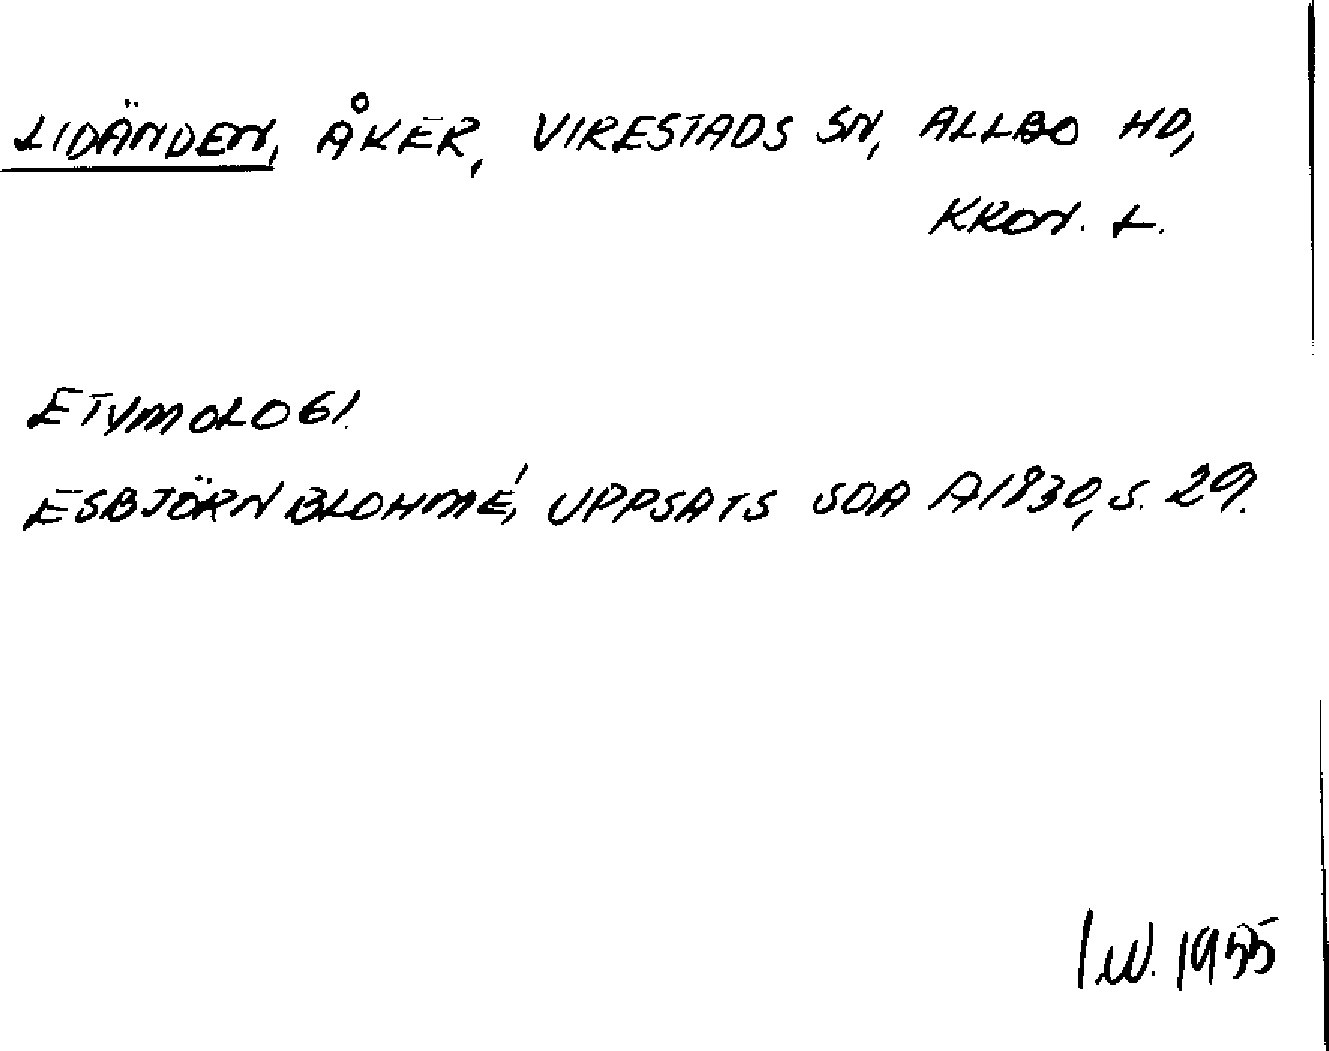 LIDÄNDEN, ÅKER, VIRESTADS SN, ALLBO HD,
KRON. L.
ETYMOLOGI.
ESBJÖRN BLOHMÉ, UPPSATS SOA A1830, S. 29.
IW. 1955